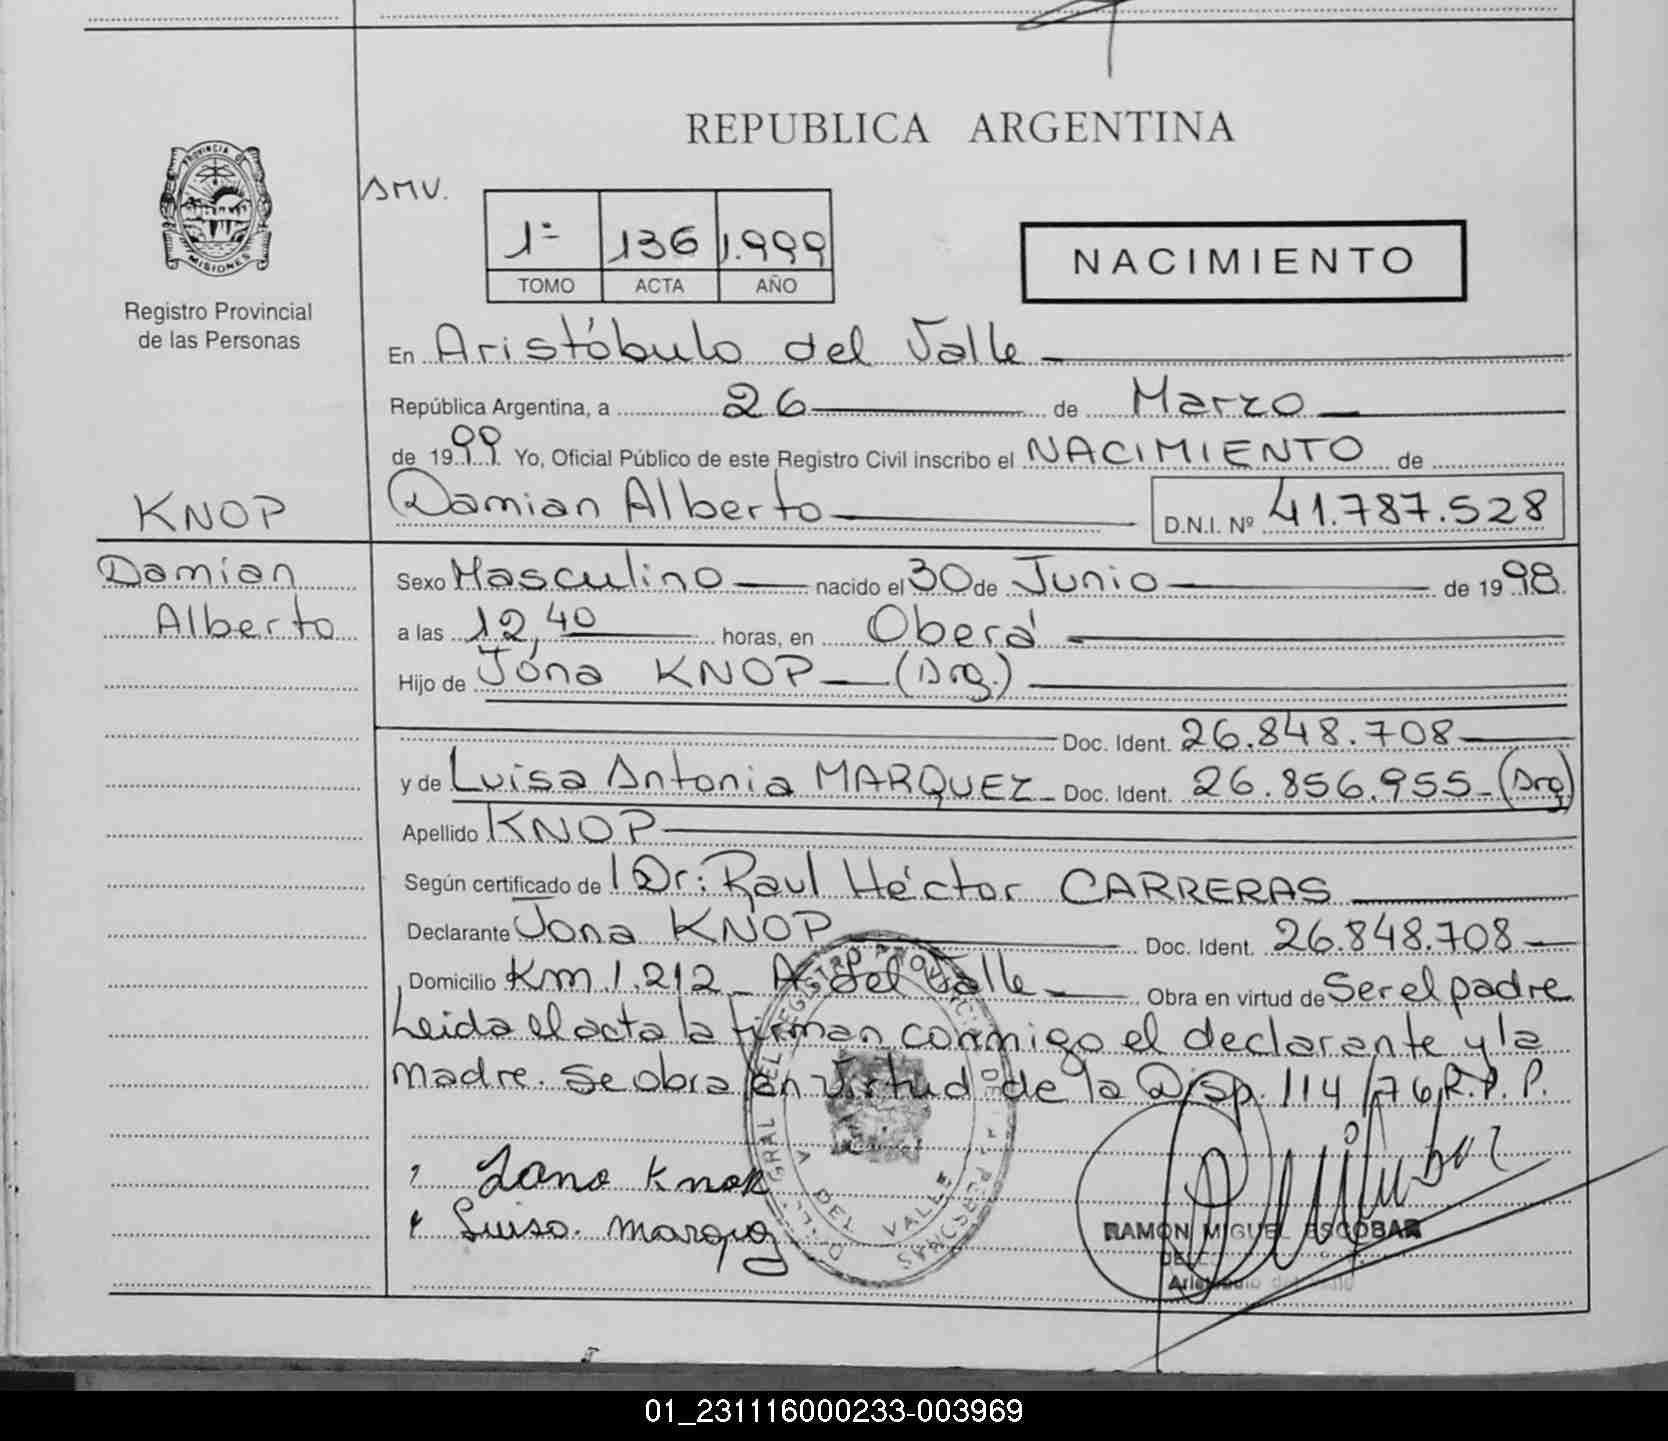 REPUBLICA ARGENTINA
PROVINCIA DE
MISIONES
Registro Provincial
de las Personas
AMV.
1º 136 1.999
TOMO ACTA AÑO
NACIMIENTO
En Aristóbulo del Valle
República Argentina, a 26 de Marzo
de 1999. Yo, Oficial Público de este Registro Civil inscribo el NACIMIENTO de
KNOP
Damian Alberto D.N.I. Nº 41.787.528
Damian
Alberto
Sexo Masculino nacido el 30 de Junio de 1998.
a las 12,40 horas, en Oberá
Hijo de Jóna KNOP (Arg.)
Doc. Ident. 26.848.708
y de Luisa Antonia MARQUEZ Doc. Ident. 26.856.955 (Arg)
Apellido KNOP
Según certificado de Dr: Raul Héctor CARRERAS
Declarante Jona KNOP Doc. Ident. 26.848.708
Domicilio Km 1.212 A. del Valle Obra en virtud de Ser el padre
Leida el acta la firman conmigo el declarante y la
Madre. Se obra en virtud de la Disp. 114/76 R.P.P.
DEL VALLE
RAMON MIGUEL ESCOBAR
01_231116000233-003969